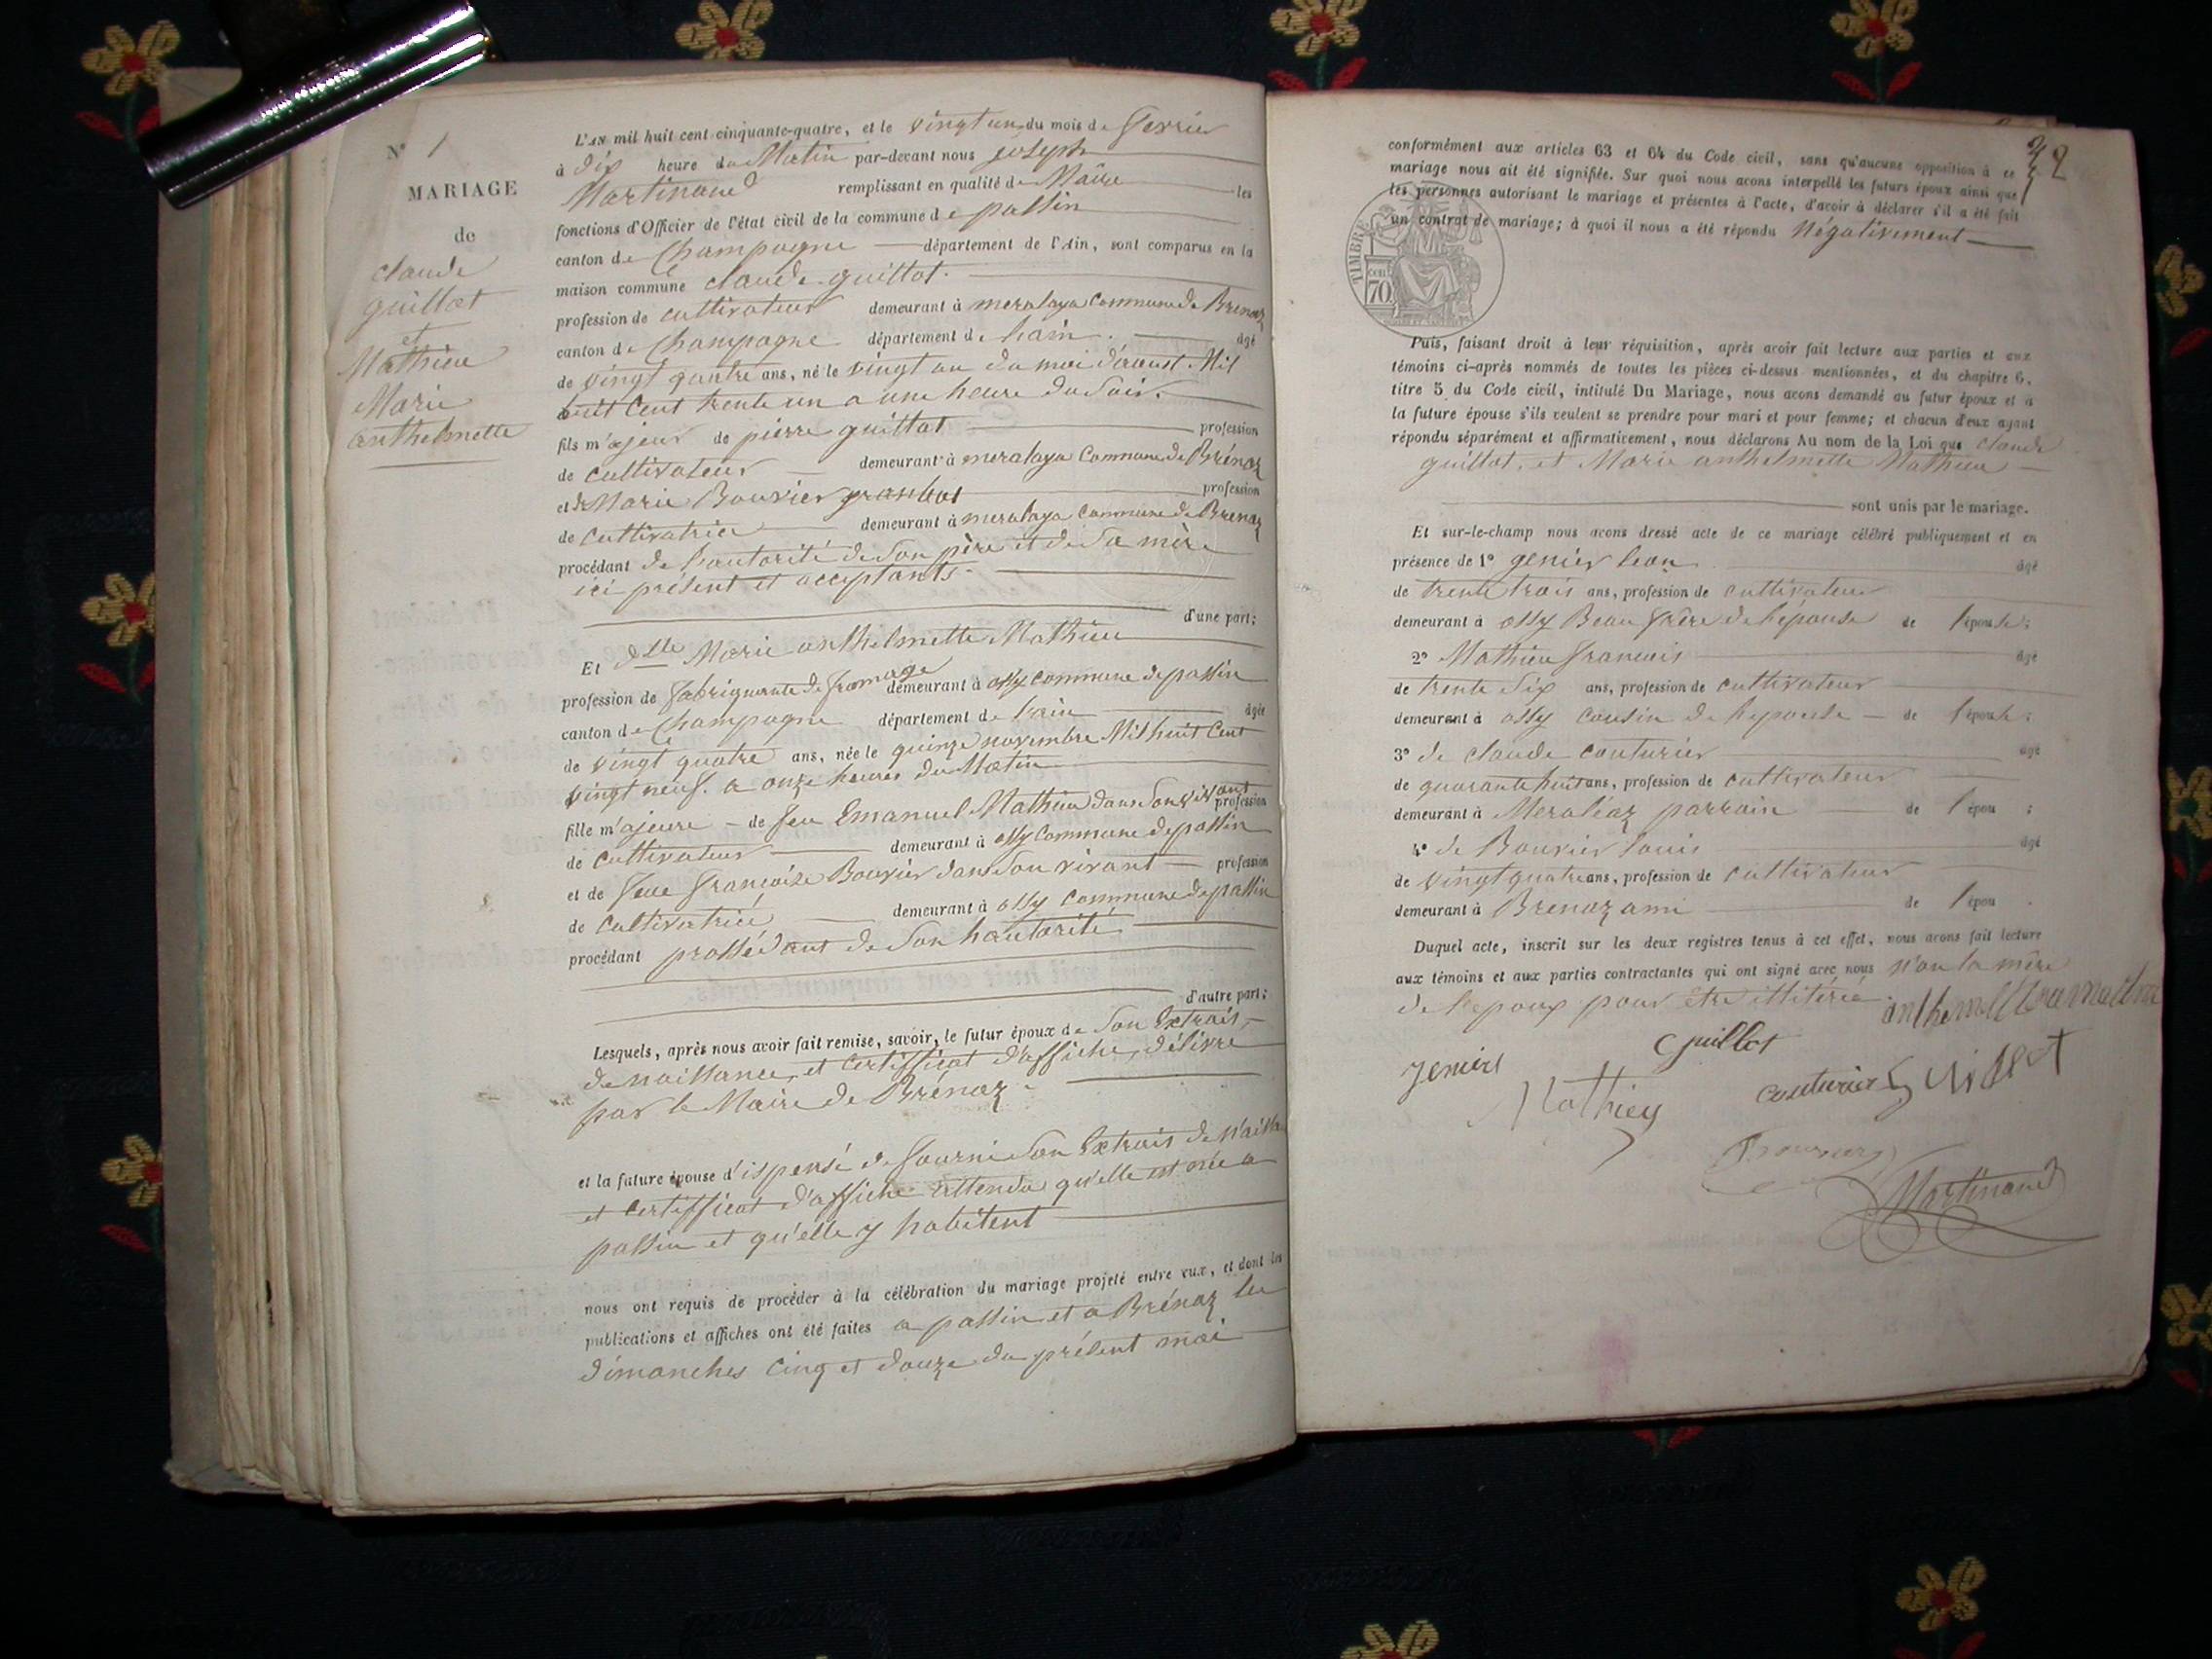 N° 1
MARIAGE
de
claude
guillot
et
Mathieu
Marie
anthelmette
L'AN mil huit cent cinquante-quatre, et le vingt un du mois de fevrier
à dix heure du Matin par-devant nous joseph
Martinand remplissant en qualité de Maire les
fonctions d'Officier de l'état civil de la commune de passin
canton de Champagne département de l'Ain, sont comparus en la
maison commune claude guillot
profession de cultivateur demeurant à meralaya Commune de Brenaz
canton de Champagne département de lain âgé
de vingt quatre ans, né le vingt un du moi d'aoust Mil
huit Cent trente un a une heure du Soir.
fils m'ajeur de pierre guillot profession
de cultivateur demeurant à meralaya Commune de Brénaz
et de Marie Bouvier profession
de cultivatrice demeurant à meralaya Commune de Brenaz
procédant de l'autorité de Son père et de Sa mère
ici présent et acceptants
d'une part;
Et dlle Marie anthelmette Mathieu
profession de fabriquante de fromage demeurant à ossy commune de passin
canton de Champagne département de lain âgée
de vingt quatre ans, née le quinze novembre Mil huit Cent
vingt neuf. a onze heures du Matin
fille m'ajeure de feu Emanuel Mathieu dans Son vivant profession
de cultivateur demeurant à ossy Commune de passin
et de feue françoise Bouvier dans Son vivant profession
de cultivatrice demeurant à ossy Commune de passin
procédant prossédant de Son hautorité
d'autre part;
Lesquels, après nous avoir fait remise, savoir, le futur époux de Son Extrais
de naissance, et Certifficat d'affiche, délivre
par le Maire de Brénaz
et la future épouse d'ispensé de fourni Son Extrais de n'aissa
et Certifficat d'affiche attendu qu'elle est née a
passin et qu'elle y habitent
nous ont requis de procéder à la célébration du mariage projeté entre eux, et dont les
publications et affiches ont été faites a passin et a Brénaz les
dimanches Cinq et douze du présent moi
32
conformément aux articles 63 et 64 du Code civil, sans qu'aucune opposition à ce
mariage nous ait été signifiée. Sur quoi nous avons interpellé les futurs époux ainsi que
les personnes autorisant le mariage et présentes à l'acte, d'avoir à déclarer s'il a été fait
un contrat de mariage; à quoi il nous a été répondu Négativement
TIMBRE
70
Puis, faisant droit à leur réquisition, après avoir fait lecture aux parties et aux
témoins ci-après nommés de toutes les pièces ci-dessus mentionnées, et du chapitre 6,
titre 5 du Code civil, intitulé Du Mariage, nous avons demandé au futur époux et à
la future épouse s'ils veulent se prendre pour mari et pour femme; et chacun d'eux ayant
répondu séparément et affirmativement, nous déclarons Au nom de la Loi que claude
guillot, et Marie anthelmette Mathieu
sont unis par le mariage.
Et sur-le-champ nous avons dressé acte de ce mariage célébré publiquement et en
présence de 1° genier leon âgé
de trente trois ans, profession de cultivateur
demeurant à ossy Beau frère de l'épouse de l'épouse;
2° Mathieu francois âgé
de trente Six ans, profession de cultivateur
demeurant à ossy cousin de lepouse de l'épouse;
3° de claude couturier âgé
de quarante huit ans, profession de cultivateur
demeurant à Meraléaz parrain de l'épou ;
4° de Bouvier louis âgé
de vingt quatre ans, profession de cultivateur
demeurant à Brenaz ami de l'épou
Duquel acte, inscrit sur les deux registres tenus à cet effet, nous avons fait lecture
aux témoins et aux parties contractantes qui ont signé avec nous n'on la mère
de lepoux pour être illitéré.
Guillot
Mathieu
couturier Guillot
Bouvier
Martinand